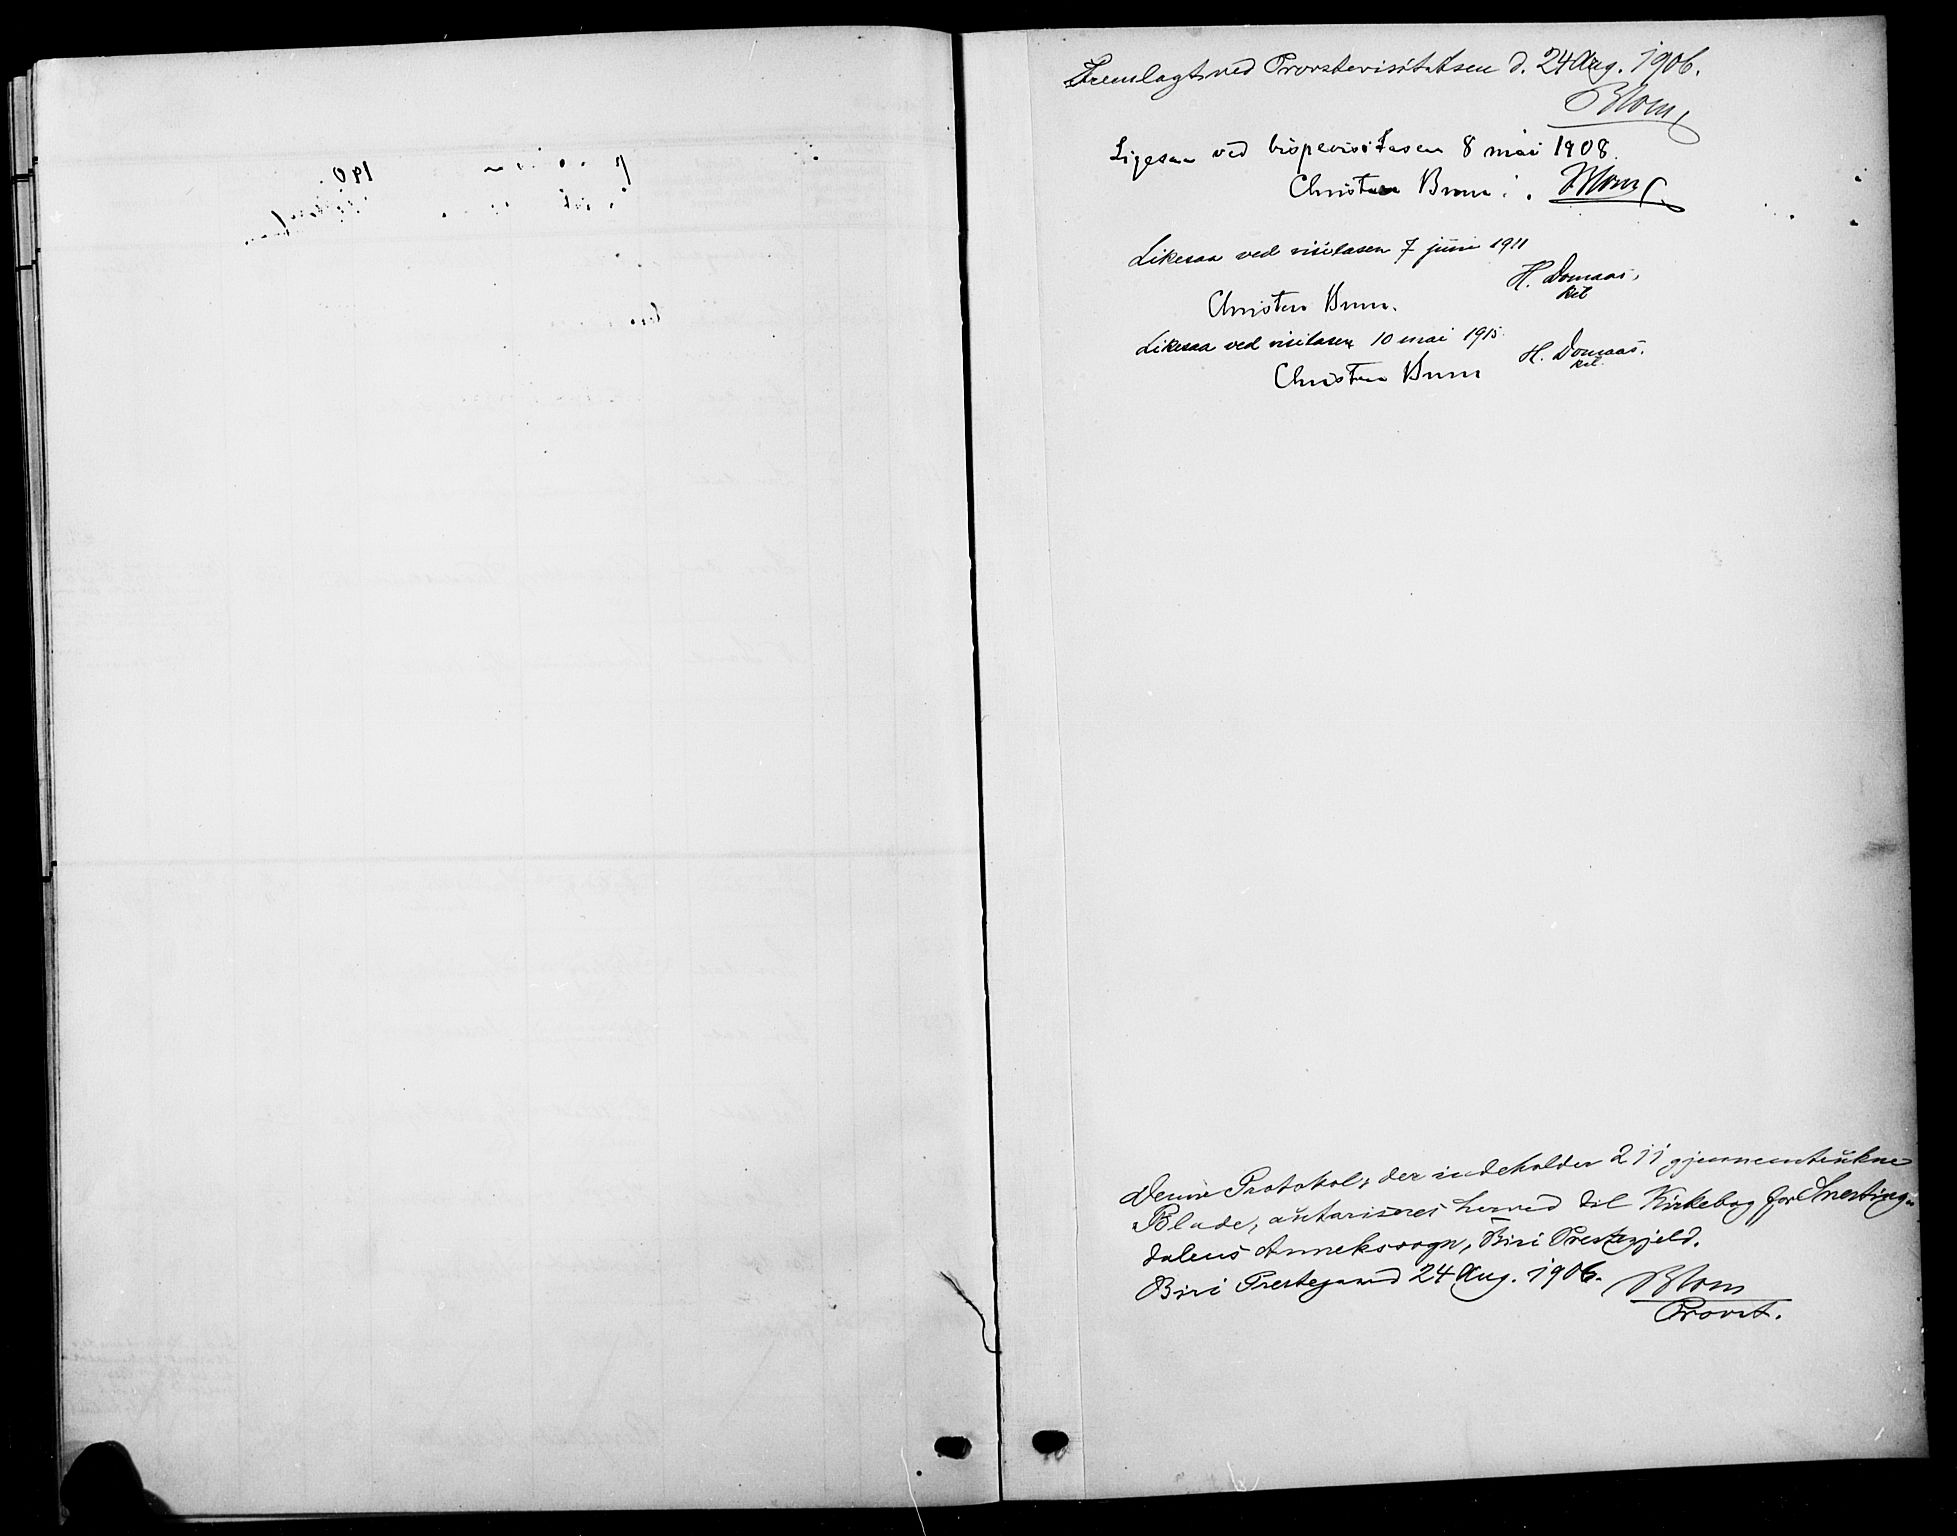 Fremlagt ved Provstevisitatsen d. 24 Aug. 1906.
Blom
Ligesaa ved bispevisitasen 8 mai 1908.
Christen Brun. Blom
Likesaa ved visitasen 7 juni 1911
H. Domaas.
Christen Brun.
Likesaa ved visitasen 10 mai 1915.
H. Domaas.
Christen Brun
Denne Protokol, der indeholder 211 gjennemtrukne
Blade, autoriseres herved til Kirkebog for Snerting-
dalens Annekssogn, Biri Prestegjeld.
Biri Prestegaard 24 Aug. 1906. Blom
Provst.